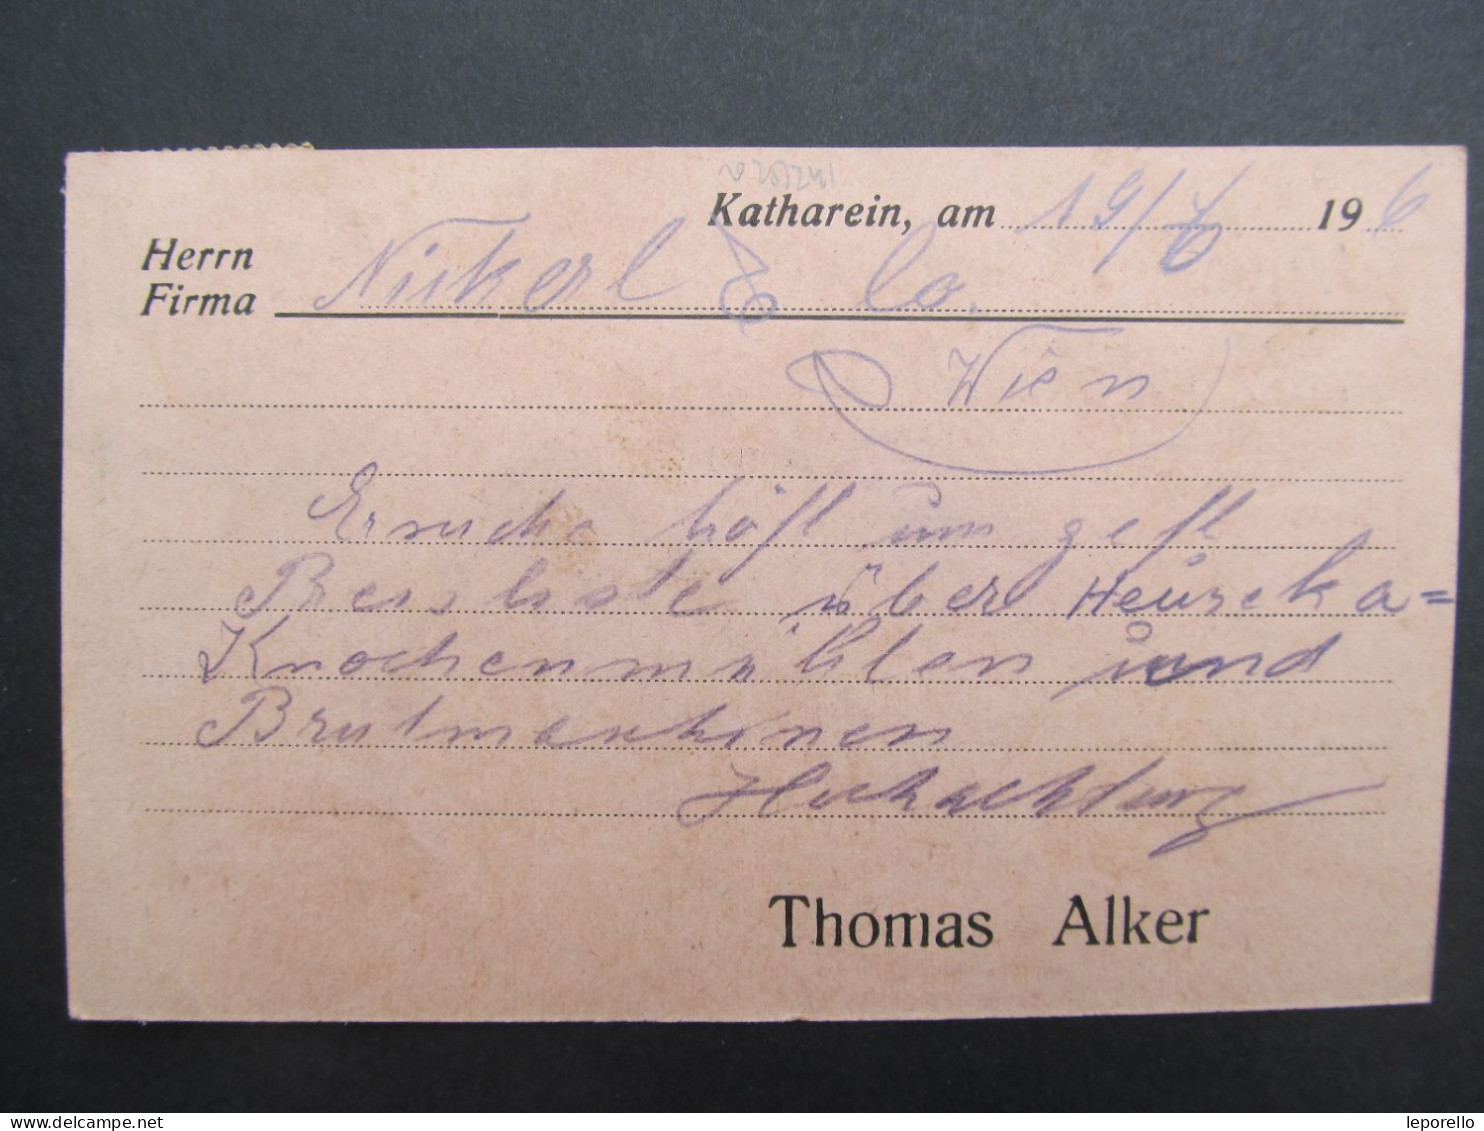 Katharein, am 19/6 196
Herrn
Firma Nickerl & Co.
Wien
Ersuche höfl um gefl
Preisliste über Heureka=
Knochenmühlen und
Brutmaschinen
Hochachtung
Thomas Alker
leporello